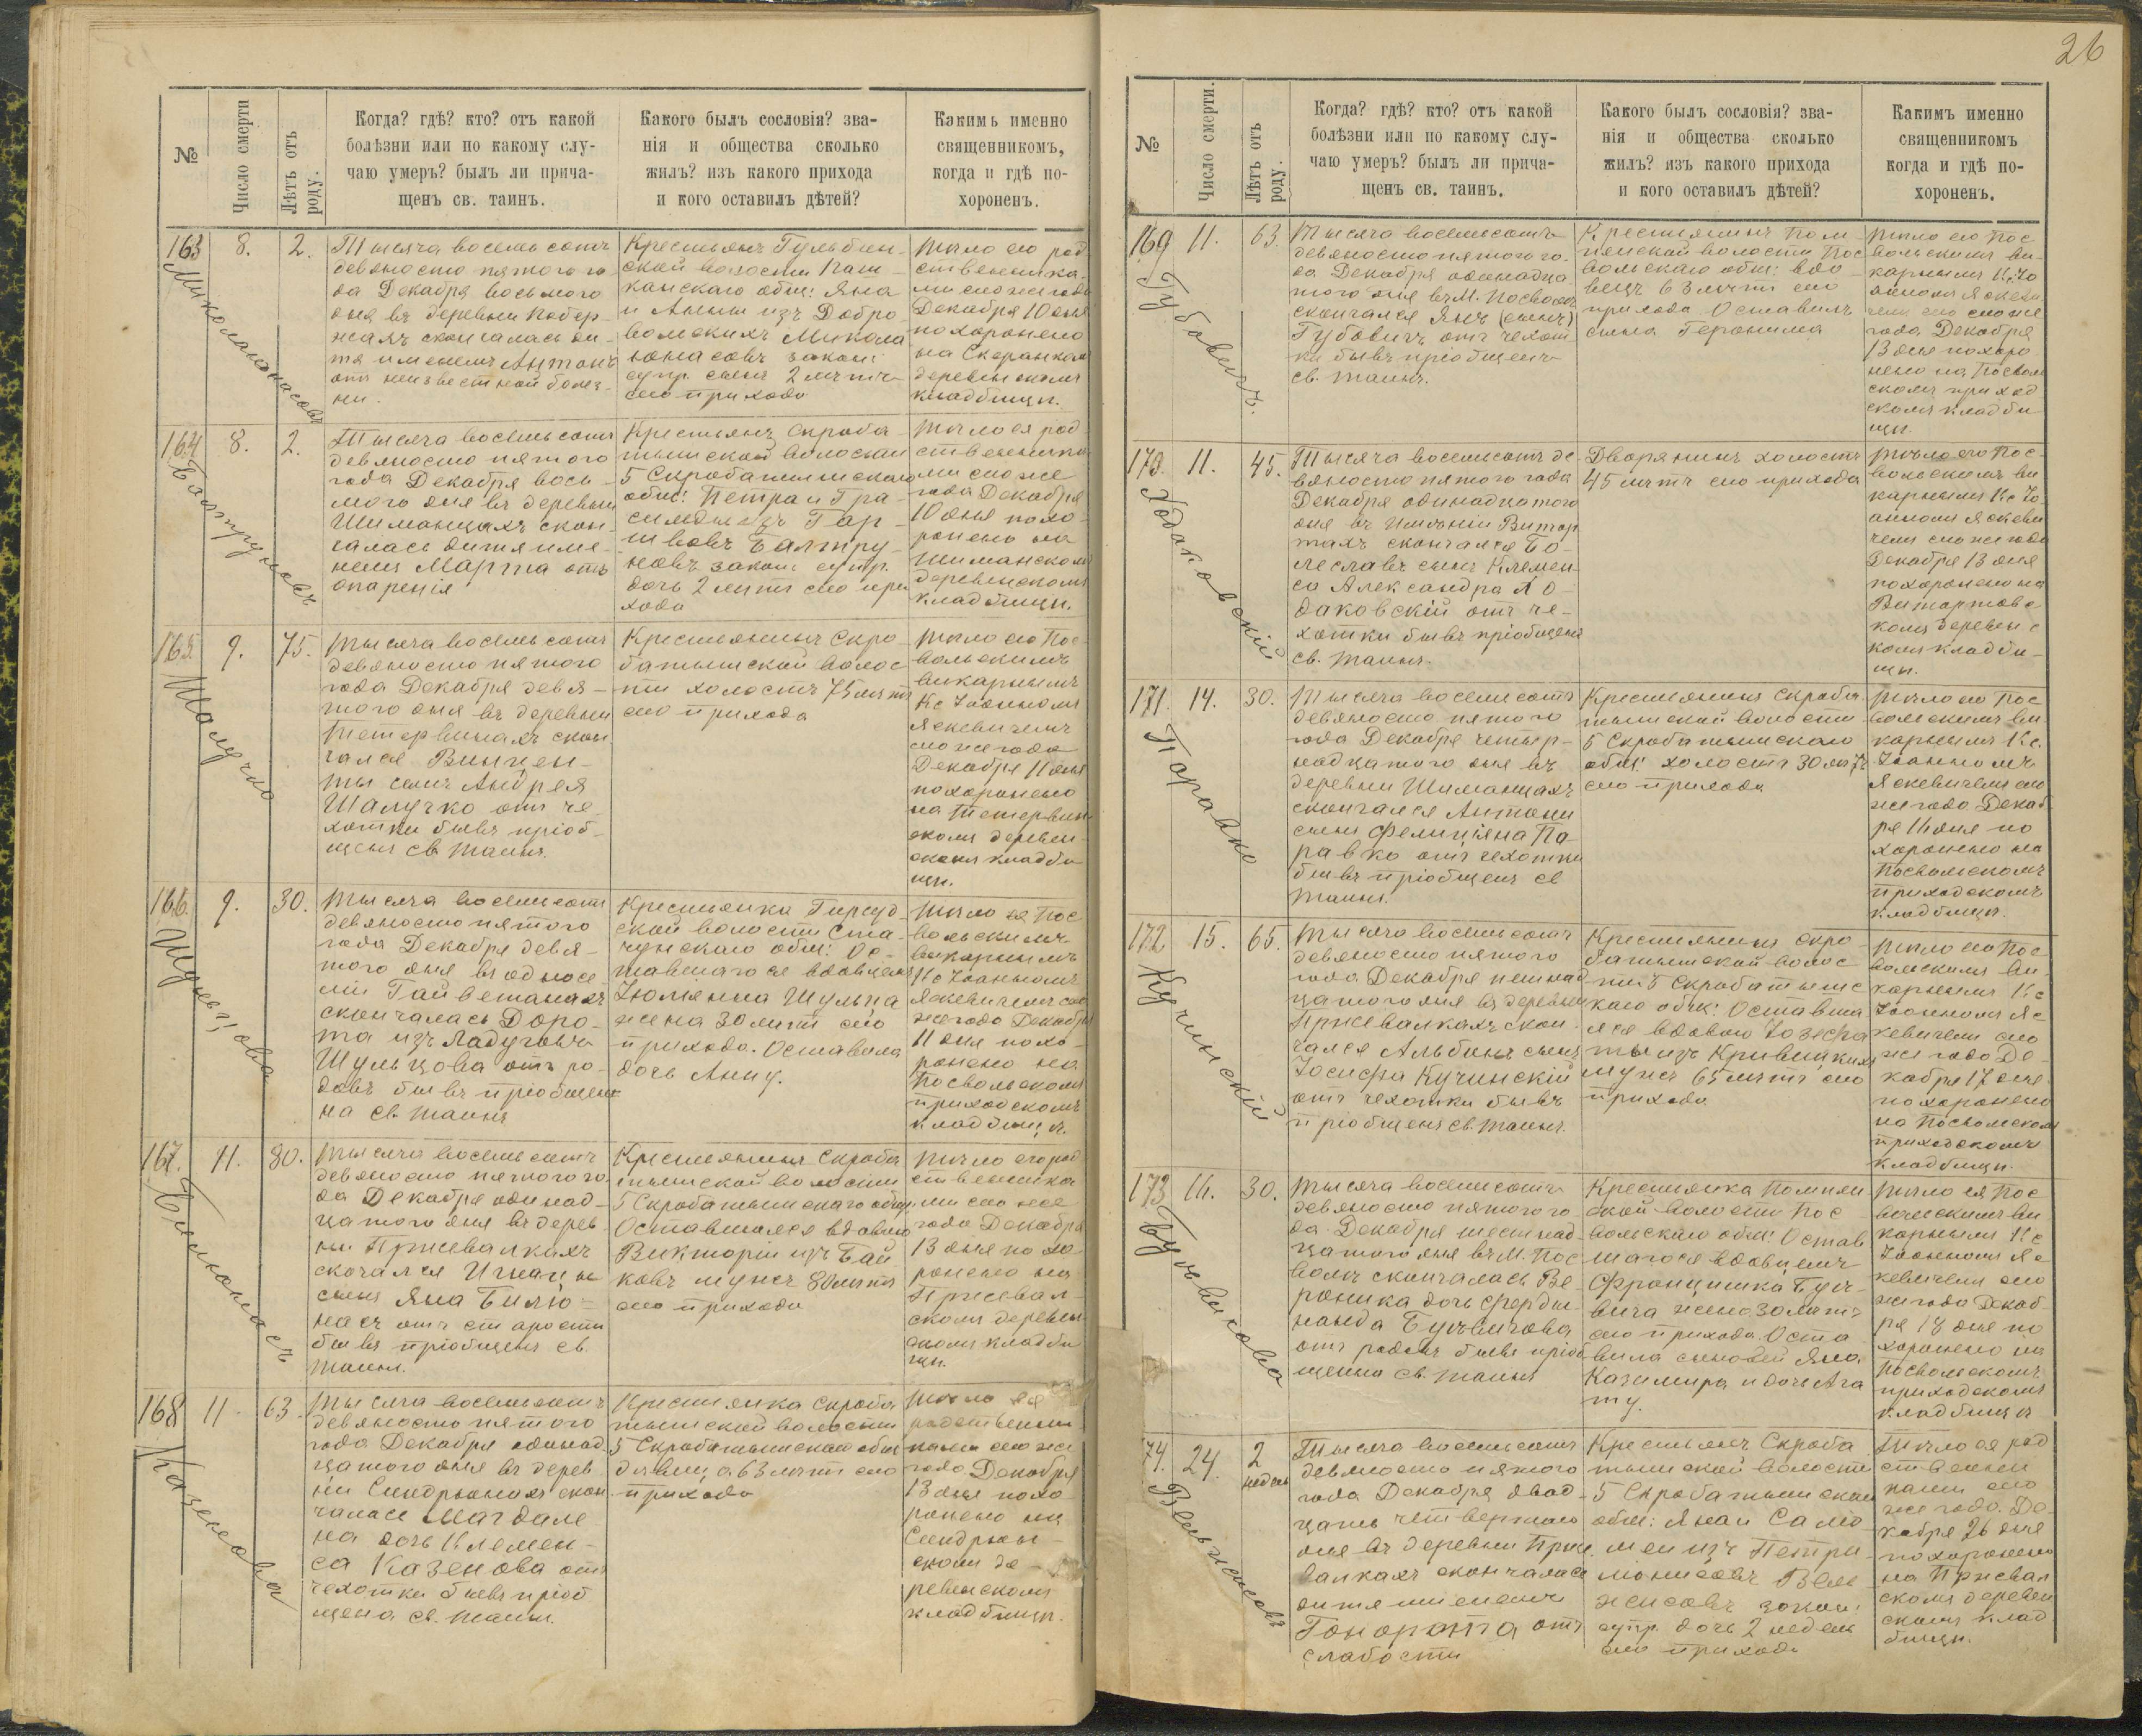 26
№
Число смерти
Лѣтъ отъ
роду.
Когда? гдѣ? кто? отъ какой
болѣзни или по какому слу-
чаю умеръ? былъ ли прича-
щенъ св. таинъ.
Какого былъ сословія? зва-
нія и общества сколько
жилъ? изъ какого прихода
и кого оставилъ дѣтей?
Какимъ именно
священникомъ,
когда и гдѣ по-
хороненъ.
163
8.
2.
Тысяча восемь сотъ
девяносто пятого го
да Декабря восьмого
дня въ деревни
скончалась ди-
тя именемъ Антонъ
отъ неизвестной болез-
ни.
Крестьянъ
ской волости
канскаго общ: Яна
и Анны изъ Добро
вольскихъ Микола
юнасовъ закон:
супр. сынъ 2 летъ
сего прихода
тѣло его род
ственника-
ми сего же года
Декабря 10 дня
похоронено
на
деревенскомъ
кладбищи.
164
8.
2.
Балтруновъ
Тысяча восемь сотъ
девяносто пятого
года Декабря вось-
мого дня въ деревни
Шиманцахъ скон-
чалась дитя име-
немъ Марта отъ
опаренія
Крестьянъ Скроба-
тышской волости
5 Скробатышскаго
общ: Петра и Гра-
сильды изъ Гар-
швовъ Балтру-
новъ закон: супр.
дочь 2 летъ сего при
хода
тѣло ея род
ственника
ми сего же
года Декабря
10 дня похо-
ронено на
Шиманскомъ
деревенскомъ
кладбищи.
165.
9.
75.
Шалучко
Тысяча восемь сотъ
девяносто пятого
года Декабря девя-
того дня въ деревни
Тетервинахъ скон
чался Винцен-
ты сынъ Андрея
Шалучко отъ че
хотки бывъ пріоб-
щенъ св. таинъ.
Крестьянинъ Скро-
батышской волос
ти холостъ 75 летъ
сего прихода
тѣло его Пос-
вольскимъ
викарнымъ
Кс Іоанномъ
Яскевичемъ
сего же года
Декабря 11 дня
похоронено
на Тетервин
скомъ деревен-
скомъ кладби
щи.
166.
9.
30.
Шульцова
Тысяча восемь сотъ
девяносто пятого
года Декабря девя-
того дня въ односе
ліи
скончалась Доро-
та изъ Ладуговъ
Шульцова отъ ро-
довъ бывъ пріобщен
на св. таинъ
Крестьянка
ской волости Ста-
чунскаго общ: Ос-
тавшагося вдовцемъ
Шульца
жена 30 летъ сего
прихода. Оставила
дочь Анну.
тѣло ея Пос
вольскимъ
викарнымъ
Кс Іоанномъ
Яскевичемъ сего
же года Декабря
11 дня похо-
ронено на
Посвольскомъ
приходскомъ
кладбищи.
167.
11.
80.
Билюнасъ
Тысяча восемь сотъ
девяносто пятого го
да Декабря одинад-
цатого дня въ дерев-
ни Пржевалкахъ
скочался Игнацы
сынъ Яна Билю-
насъ отъ старости
бывъ пріобщенъ св.
таинъ.
Крестьянинъ Скроба
тышской волости
5 Скробатышскаго общ.
Оставшаяся вдовою
Викторіи изъ Бай
ковъ мужъ 80 летъ
сего прихода
тѣло его род
ственника
ми сего же
года Декабря
13 дня похо
ронено на
Пржевал-
скомъ деревен
скомъ кладби
щи.
168
11
63.
Казенова
Тысяча восемь сотъ
девяносто пятого
года Декабря одинад
цатого дня въ дерев
ни скон
чалась Магдале
на дочь Клемен-
са Казенова отъ
чехотки бывъ пріоб
щена св. таинъ.
Крестьянка Скроба
тышской волости
5 Скробатышскаго общ
девица 63 летъ сего
прихода
тѣло ея
родственни
ками сего же
года Декабря
13 дня похо
ронено на
скомъ де-
ревенскомъ
кладбищи.
№
Число смерти.
Лѣтъ отъ
роду.
Когда? гдѣ? кто? отъ какой
болѣзни или по какому слу-
чаю умеръ? былъ ли прича-
щенъ св. таинъ.
Какого былъ сословія? зва-
нія и общества сколько
жилъ? изъ какого прихода
и кого оставилъ дѣтей?
Какимъ именно
священникомъ
когда и гдѣ по-
хороненъ.
169
11.
63.
Губовичъ.
Тысяча восемь сотъ
девяносто пятого го-
да Декабря одинадца
того дня въ М. Посволе
скончался Янъ (сынъ)
Губовичъ отъ чехот
ки бывъ пріобщенъ
св. таинъ.
Крестьянинъ Пом-
пянской волости Пос
вольскаго общ: вдо
вецъ 63 летъ сего
прихода Оставилъ
сына Геронима
тѣло его Пос
вольскимъ ви
карнымъ Кс. Іо
анномъ Яскеви
чемъ сего же
года Декабря
13 дня похоро
нено на Посволь
скомъ приход
скомъ кладби
щи.
170.
11.
45.
Ходаковскій
Тысяча восемьсотъ де-
вяносто пятого года
Декабря одинадцатого
дня въ имѣніи Витар
тахъ скончался Бо-
леславъ сынъ Клемен-
са Александра Хо-
даковскій отъ че-
хотки бывъ пріобщенъ
св. таинъ.
Дворянинъ холостъ
45 летъ сего прихода
тѣло его Пос-
вольскимъ ви
карнымъ Кс Іо
анномъ Яскеви
чемъ сего же года
Декабря 13 дня
похоронено на
Витартовс
комъ деревенс
комъ кладби-
щи.
171.
14.
30.
Паравко
Тысяча восемь сотъ
девяносто пятого
года Декабря четыр-
надцатого дня въ
деревни Шиманцахъ
скончался Антони
сынъ Фелиціяна Па-
равко отъ чехотки
бывъ пріобщенъ св
таинъ.
Крестьянинъ Скроба
тышской волости
5 Скробатышскаго
общ: холостъ 30 летъ
сего прихода
тѣло его Пос
вольскимъ ви
карнымъ Кс.
Іоанномъ
Яскевичемъ сего
же года Декаб
ря 16 дня по
хоронено на
Посвольскомъ
приходскомъ
кладбищи.
172
15.
65.
Кучинскій
Тысяча восемь сотъ
девяносто пятого
года Декабря пятнад
цатого дня въ деревни
Пржевалкахъ скон
чался Альбинъ сынъ
Іосифа Кучинскій
отъ чехотки бывъ
пріобщенъ св. таинъ.
Крестьянинъ Скро
батышской волос
ти 5 Скробатышс
каго общ: Оставша
яся вдовою Іозефа
ты изъ Кривицкихъ
мужъ 65 летъ сего
прихода
тѣло его Пос
вольскимъ ви-
карнымъ Кс
Іоанномъ Яс
кевичемъ сего
же года Де-
кабря 17 дня
похоронено
на Посвольскомъ
приходскомъ
кладбищи.
173
16.
30.
Буцевичова
Тысяча восемь сотъ
девяносто пятого го
да Декабря шестнад
цатого дня въ М. Пос
волѣ скончалась Ве
роника дочь Ферди
нанда Буцевичова
отъ родовъ бывъ пріоб
щенна св. таинъ
Крестьянка Помпян
ской волости Пос-
вольскаго общ: Остав
шагося вдовцемъ
Францишка Буц-
вича жена 30 летъ
сего прихода. Оста
вила сыновей Яна
Казимира и дочь Ага
ту.
тѣло ея Пос
вольскимъ ви
карнымъ Кс
Іоанномъ Яс
кевичемъ сего
же года Декаб-
ря 18 дня по
хоронено на
Посвольскомъ
приходскомъ
кладбищи
174.
24.
2
недель
Вельжисовъ
Тысяча восемь сотъ
девяносто пятого
года Декабря двад-
цать четвертого
дня въ деревни Прже
валкахъ скончалась
дитя именемъ
Гонората отъ
слабости
Крестьянъ Скроба
тышской волости
5 Скробатышскаго
общ: Яна и Сало
меи изъ Петри
монисовъ Вель
жисовъ закон:
супр. дочь 2 недель
сего прихода
Тѣло ея род
ственни
ками сего
же года Де
кабря 26 дня
похоронено
на Пржеваль
скомъ деревен
скомъ клад
бищи.